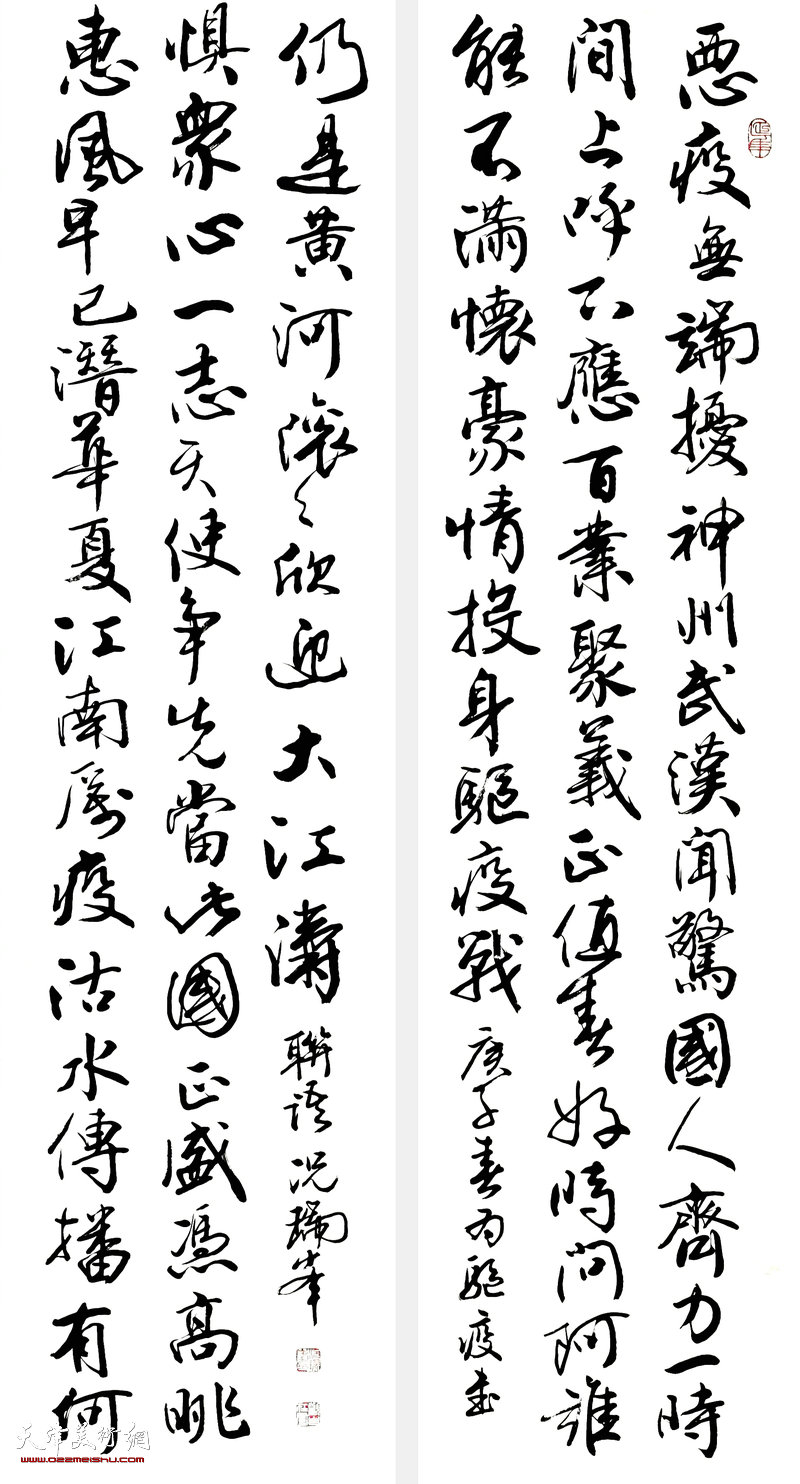 悪疫無端擾神州武漢聞驚國人齊力一時
間上呼下應百業聚義正值春好時問阿誰
能不滿懷豪情投身驅疫戰 庚子春為驅疫書
惠風早已潛華夏江南厲疫沽水傳播有何
懼衆心一志天使爭先當此國正盛憑高眺
仍是黄河滾々欣迎大江濤 聯語況瑞峯
天津美術網
www.022meishu.com